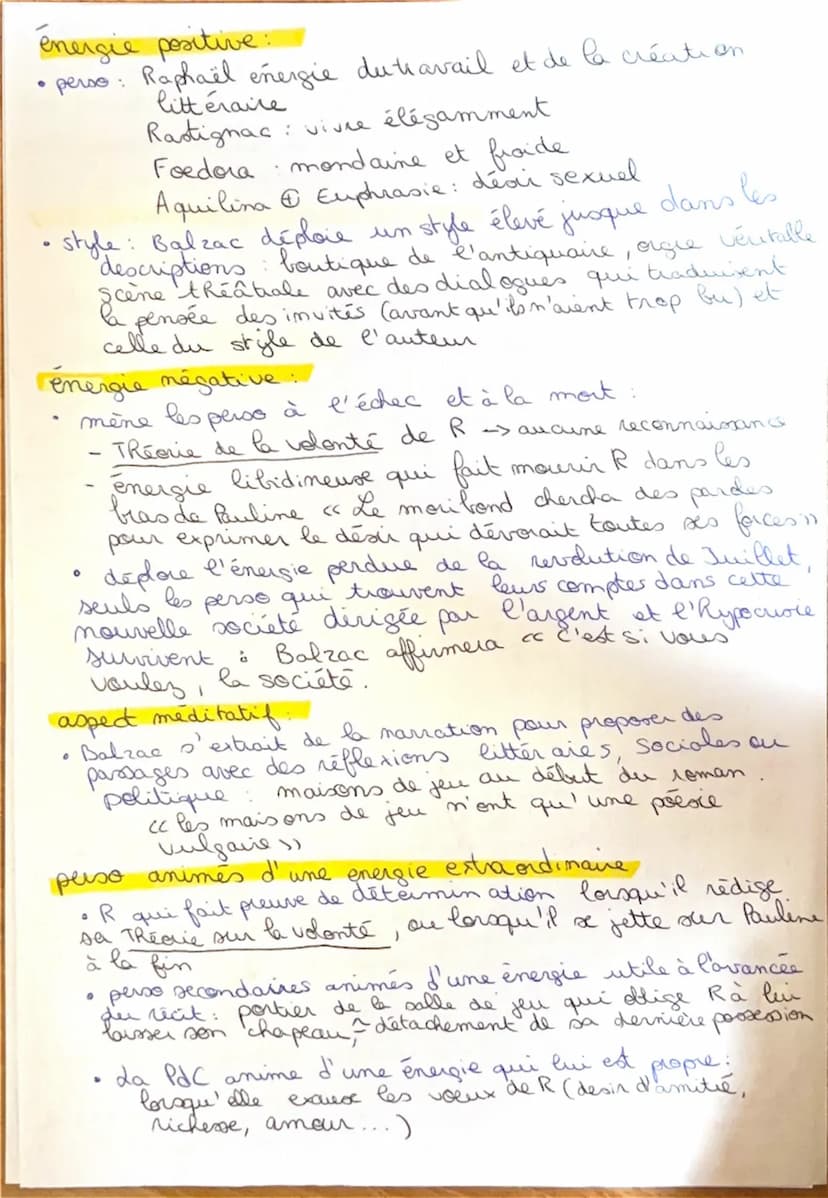 énergie positive :
• perso : Raphaël énergie du travail et de la création
littéraire
Rastignac : vivre élégamment
Foedora : mondaine et froide
Aquilina ⊕ Euphrasie : désir sexuel
• style : Balzac déploie un style élevé jusque dans les
descriptions : boutique de l'antiquaire, orgie véritable
scène théâtrale avec des dialogues qui traduisent
la pensée des invités (avant qu'ils n'aient trop bu) et
celle du style de l'auteur
énergie négative :
• mène les perso à l'échec et à la mort :
- Théorie de la volonté de R -> aucune reconnaissance
- énergie libidineuse qui fait mourir R dans les
bras de Pauline « Le moribond chercha des paroles
pour exprimer le désir qui dévorait toutes ses forces »
• déplore l'énergie perdue de la révolution de Juillet,
seuls les perso qui trouvent leurs comptes dans cette
nouvelle société dirigée par l'argent et l'hypocrisie
survivent : Balzac affirmera « c'est si vous
voulez, la société.
aspect méditatif :
• Balzac s'extrait de la narration pour proposer des
passages avec des réflexions littéraies, sociales ou
politique : maisons de jeu au début du roman.
« les maisons de jeu n'ont qu'une poésie
vulgaire »
perso animés d'une energie extraordinaire
• R qui fait preuve de détermination lorsqu'il rédige
sa Théorie sur la volonté, ou lorsqu'il se jette sur Pauline
à la fin
• perso secondaires animés d'une énergie utile à l'avancée
du récit : portier de la salle de jeu qui oblige R à lui
laisser son chapeau, ~ détachement de sa dernière possession
• La PdC anime d'une énergie qui lui est propre :
lorsqu'elle exauce les voeux de R (desir d'amitié,
richesse, amour...)